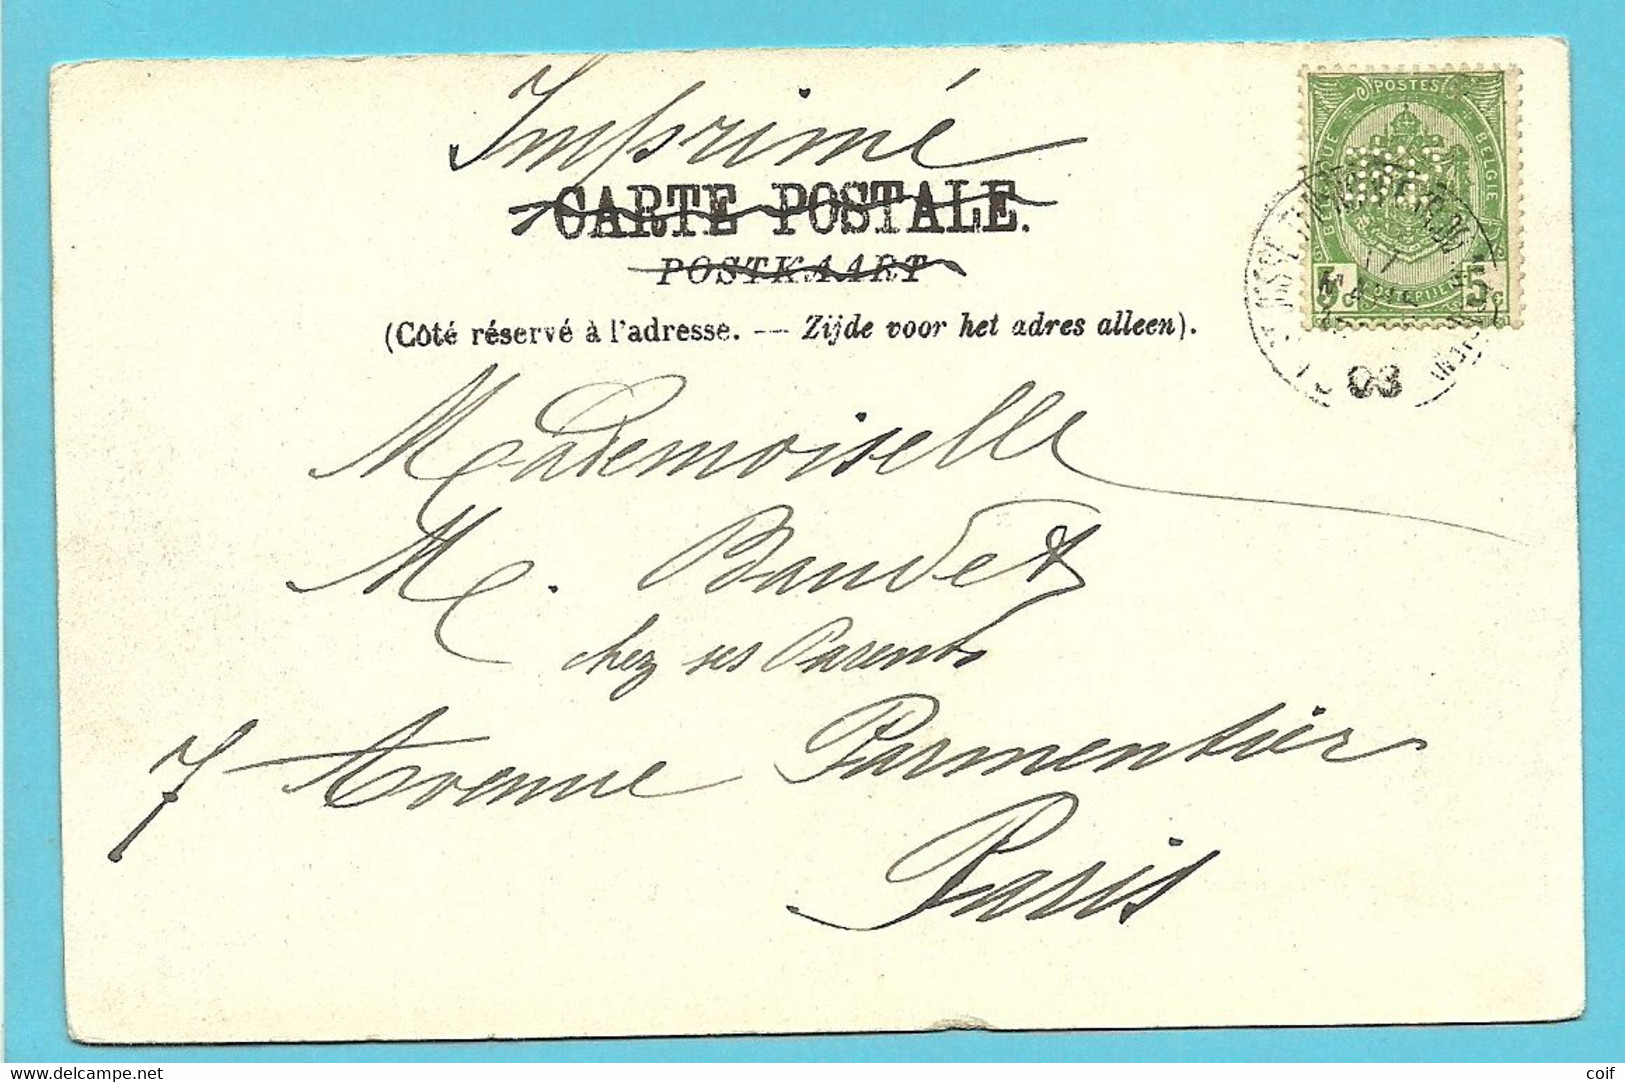 Imprimé
CARTE POSTALE.
POSTKAART
(Côté réservé à l'adresse. — Zijde voor het adres alleen).
POSTES
BELGIQUE BELGIE
5c 5c
MARS
03
Mademoiselle
M. Baudet
chez ses Parents
7 Avenue Parmentier
Paris
delcampe.net
coif